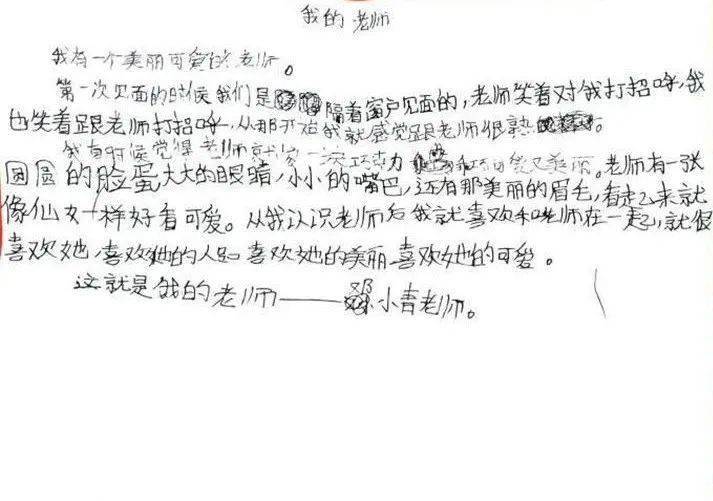 我的老师
我有一个美丽可爱的老师。
第一次见面的时候我们是隔着窗户见面的,老师笑着对我打招呼,我
也笑着跟老师打招呼,从那开始我就感觉跟老师很熟。
我有时候觉得老师就像一次巧克力 可爱又美丽。老师有一张
圆圆的脸蛋大大的眼睛,小小的嘴巴,还有那美丽的眉毛,看起来就
像仙女一样好看可爱。从我认识老师后我就喜欢和老师在一起,就很
喜欢她,喜欢她的人品 喜欢她的美丽 喜欢她的可爱。
这就是我的老师——邓小青老师。